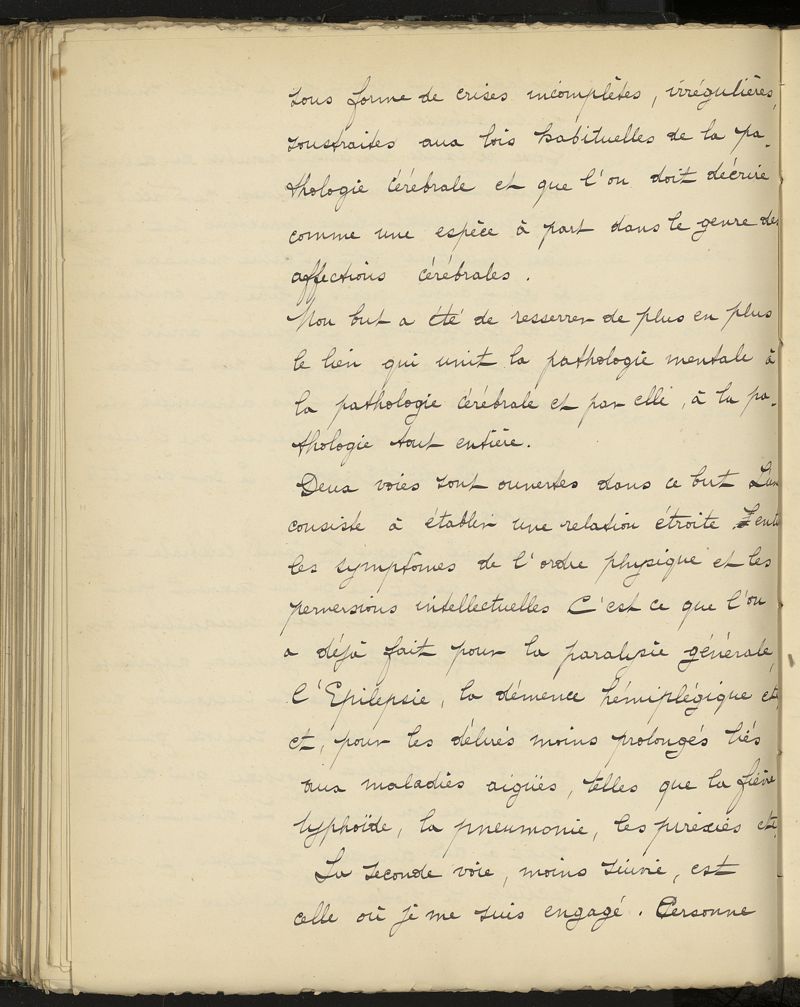 sous forme de crises incomplètes, irrégulières,
soustraites aux lois habituelles de la pa-
thologie cérébrale et que l'on doit décrire
comme une espèce à part dans le genre des
affections cérébrales.
Mon but a été de resserrer de plus en plus
le lien qui unit la pathologie mentale à
la pathologie cérébrale et par elle, à la pa-
thologie tout entière.
Deux voies sont ouvertes dans ce but L'un
consiste à établir une relation étroite entr
les symptômes de l'ordre physique et les
perversions intellectuelles C'est ce que l'on
a déjà fait pour la paralysie générale,
l'Epilepsie, la démence hémiplégique etc,
et, pour les délires moins prolongés liés
aux maladies aigües, telles que la fièvre
typhoïde, la pneumonie, les piréxies etc,
La seconde voie, moins suivie, est
celle où je me suis engagé. Personne